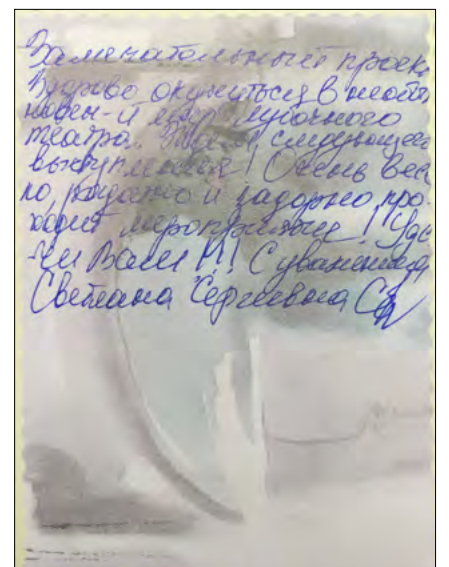 Замечательный проек
Здорово окунуться в необы
мир лубочного
театра. Ждем следующее
выступление! Очень вес
ло, радатно и задорно про-
ходит мероприятие! Уда
чи Вам И! С уважением
Светлана Сергеевна